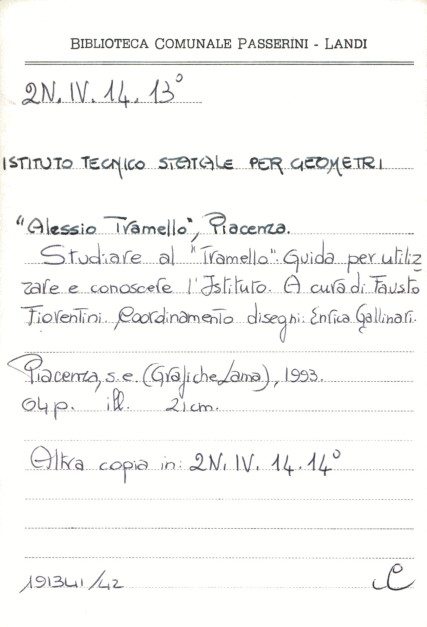 BIBLIOTECA COMUNALE PASSERINI - LANDI
2N. IV. 14. 13°
ISTITUTO TECNICO STATALE PER GEOMETRI
"Alessio Tramello", Piacenza.
Studiare al "Tramello". Guida per utiliz
zare e conoscere l'Istituto. A cura di Fausto
Fiorentini. Coordinamento disegni: Enrica Gallinari.
Piacenza, s.e. (Grafiche Lama), 1993.
64 p. ill. 21 cm.
Altra copia in: 2N. IV. 14. 14°
191341/42